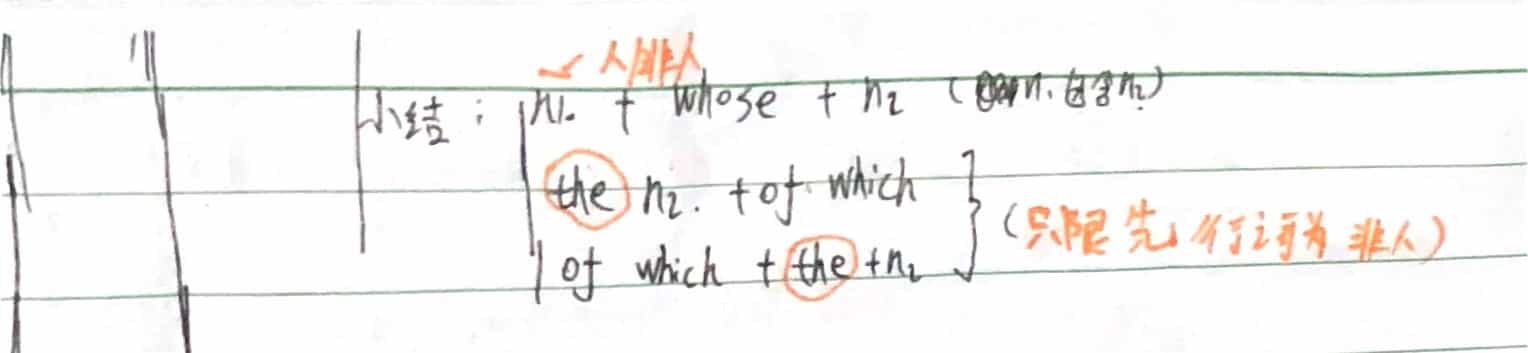 人/非人
小结: n1. + whose + n2 (n1包含n2)
the n2. + of which
of which + the + n2
(只限先行词为非人)